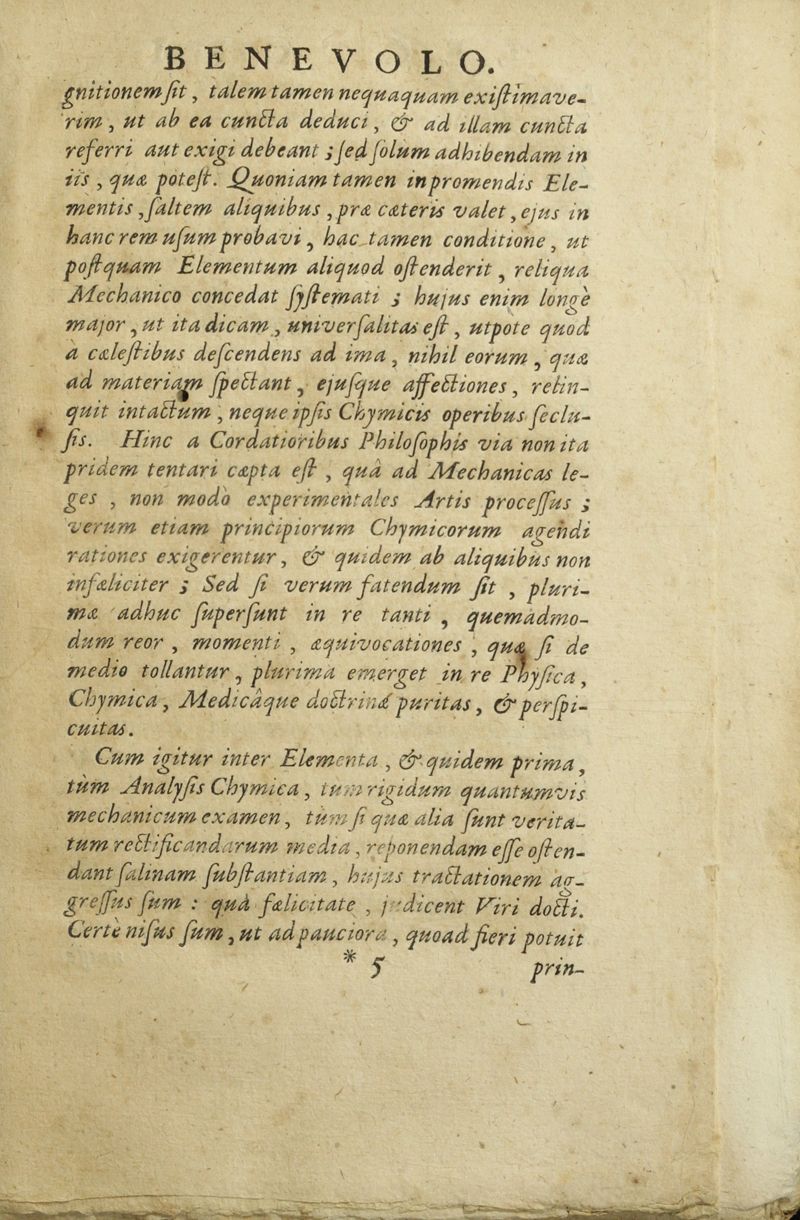 BENEVOLO.
gnitionem ſit, talem tamen nequaquam exiſtimave-
rim, ut ab ea cuncta deduci, & ad illam cuncta
referri aut exigi debeant; ſed ſolum adhibendam in
iis, quæ poteſt. Quoniam tamen in promendis Ele-
mentis, ſaltem aliquibus, præ cæteris valet, ejus in
hanc rem uſum probavi, hac tamen conditione, ut
poſtquam Elementum aliquod oſtenderit, reliqua
Mechanico concedat ſyſtemati; hujus enim longè
major, ut ita dicam, univerſalitas eſt, utpote quod
à cæleſtibus deſcendens ad ima, nihil eorum, quæ
ad materiam ſpectant, ejuſque affectiones, relin-
quit intactum, neque ipſis Chymicis operibus ſeclu-
ſis. Hinc a Cordatioribus Philoſophis via non ita
pridem tentari cæpta eſt, quâ ad Mechanicas le-
ges, non modo experimentales Artis proceſſus;
verum etiam principiorum Chymicorum agendi
rationes exigerentur, & quidem ab aliquibus non
infæliciter; Sed ſi verum fatendum ſit, pluri-
mæ adhuc ſuperſunt in re tanti, quemadmo-
dum reor, momenti, æquivocationes, quæ ſi de
medio tollantur, plurima emerget in re Phyſica,
Chymica, Medicâque doctrinâ puritas, & perſpi-
cuitas.
Cum igitur inter Elementa, & quidem prima,
tùm Analyſis Chymica, tum rigidum quantumvis
mechanicum examen, tùm ſi quæ alia ſunt verita-
tum rectificandarum media, reponendam eſſe oſten-
dant ſalinam ſubſtantiam, hujus tractationem ag-
greſſus ſum: quâ fælicitate, judicent Viri docti.
Certè niſus ſum, ut ad pauciora, quoad fieri potuit
* 5 prin-